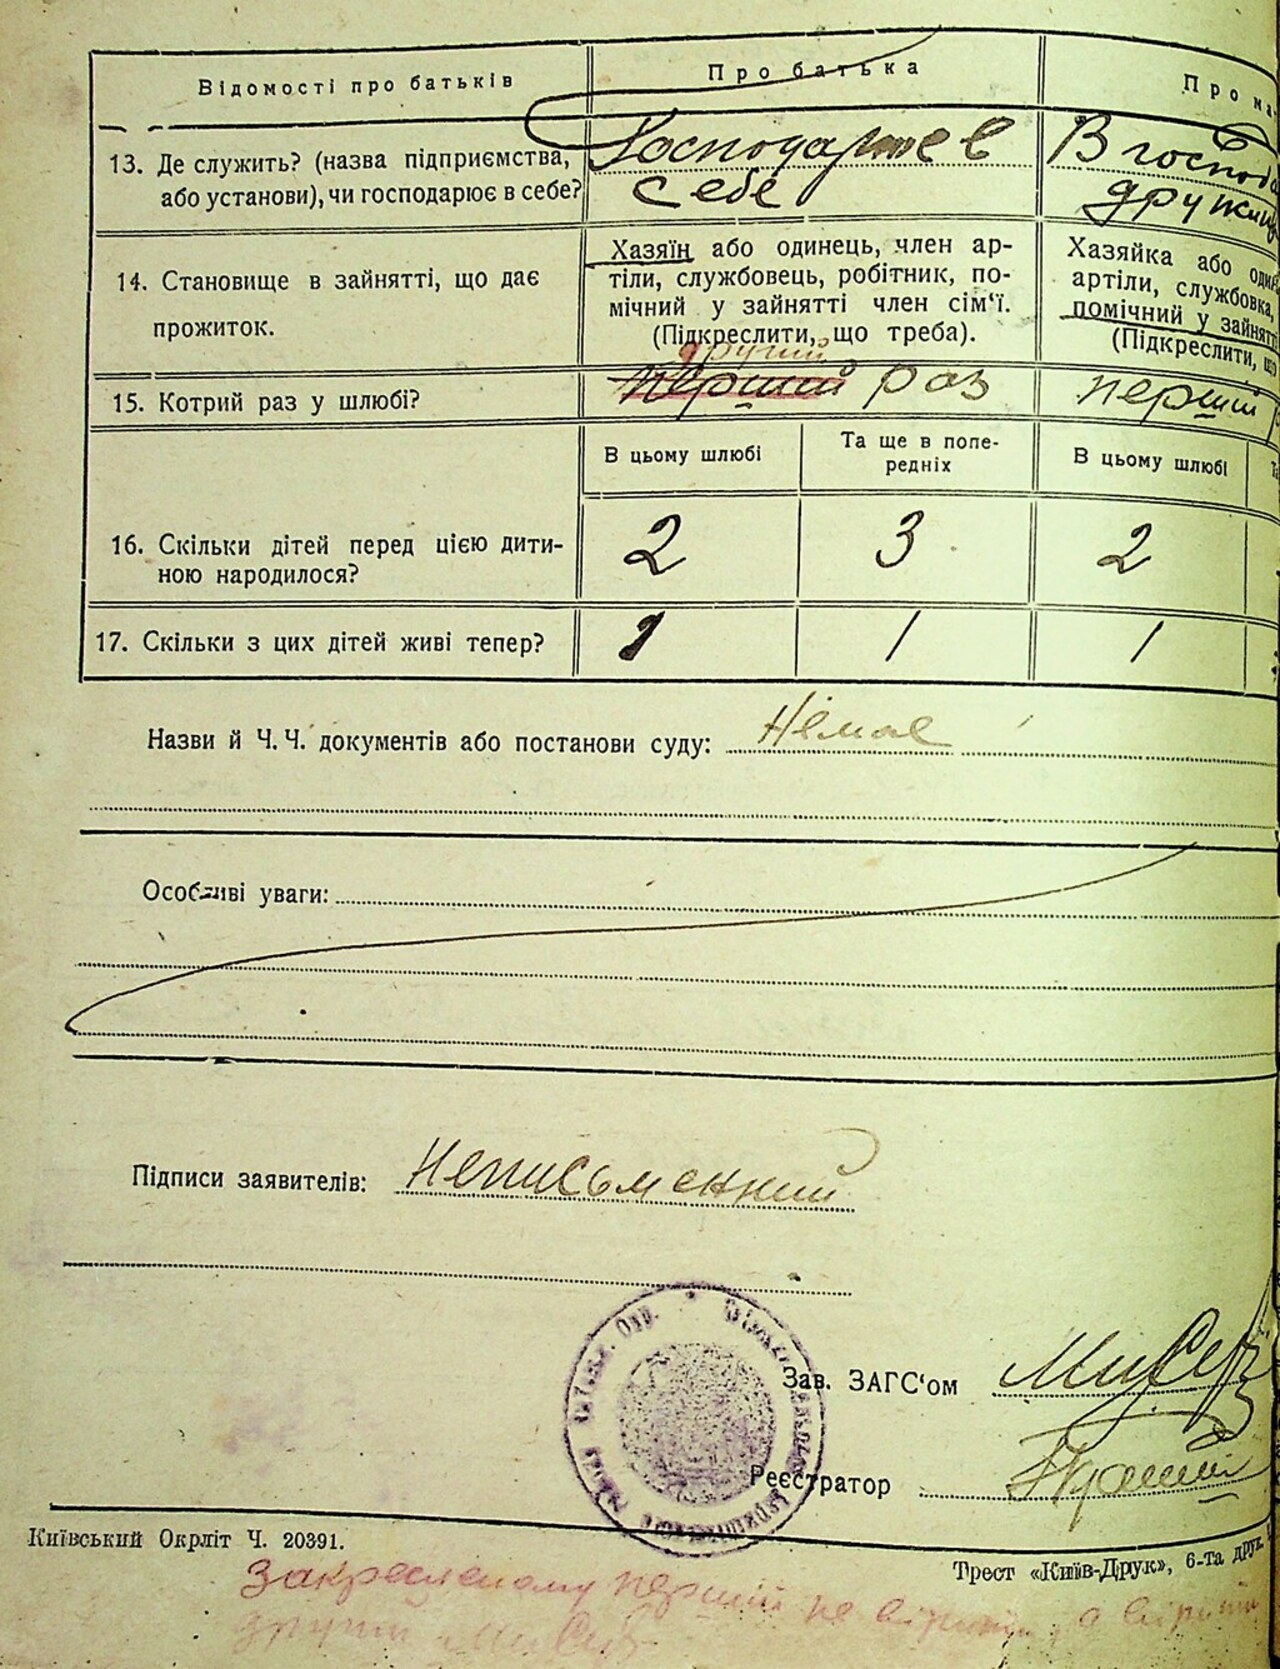 Відомості про батьків
Про батька
Про ма-
13. Де служить? (назва підприємства,
або установи), чи господарює в себе?
Господарює в
себе
В господа
дружин
14. Становище в зайнятті, що дає
прожиток.
Хазяїн або одинець, член ар-
тіли, службовець, робітник, по-
мічний у зайнятті член сім‘ї.
(Підкреслити, що треба).
Хазяйка або один
артіли, службовка,
помічний у зайнятті
(Підкреслити, що
15. Котрий раз у шлюбі?
другий
перший раз
перший
В цьому шлюбі
Та ще в попе-
редніх
В цьому шлюбі
16. Скільки дітей перед цією дити-
ною народилося?
2
3
2
17. Скільки з цих дітей живі тепер?
1
1
1
Назви й Ч. Ч. документів або постанови суду: Немає
Особливі уваги:
Підписи заявителів: Неписьменний
Зав. ЗАГС‘ом
Реєстратор
Київський Окрліт Ч. 20391.
Трест «Київ-Друк», 6-та друк.
Закресленому перший не вірити, а вірити
другий